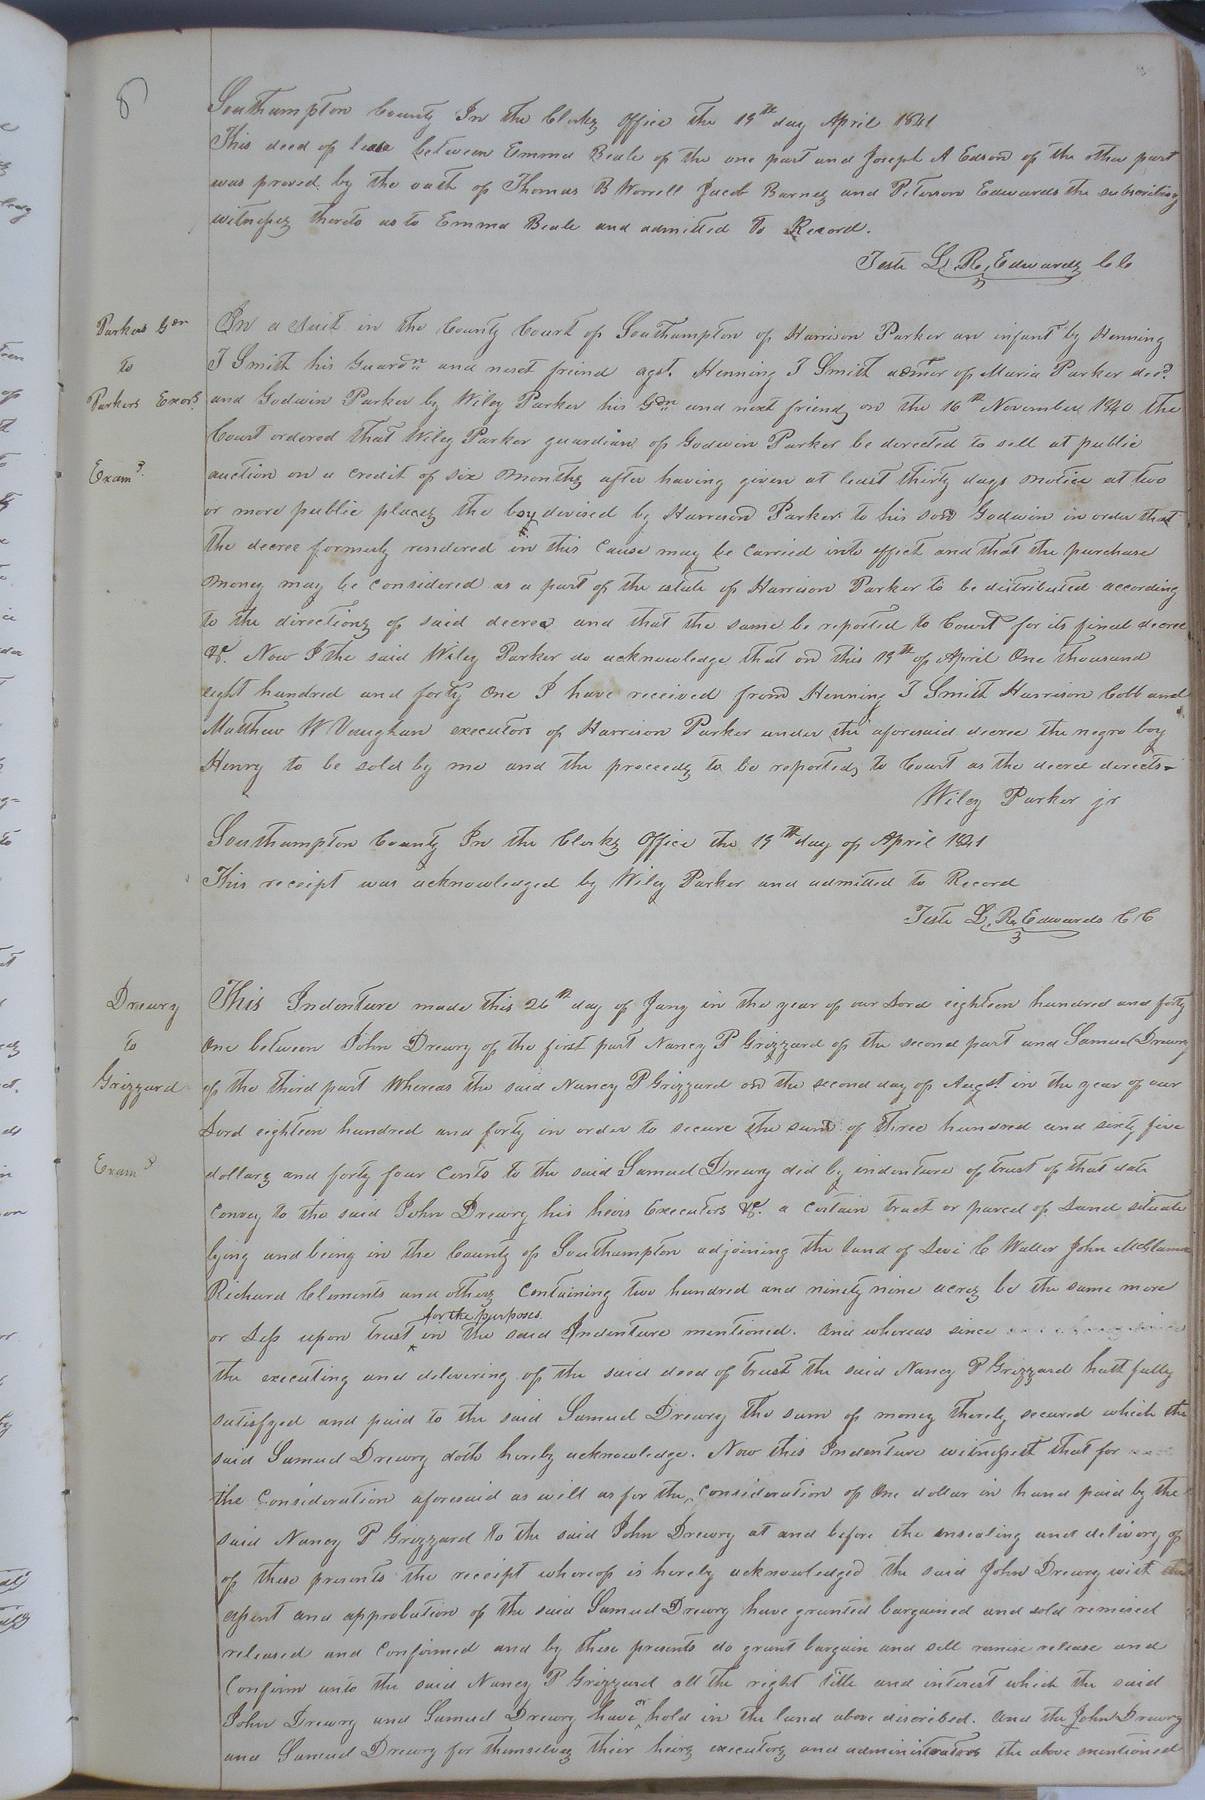 8
Southampton County In the Clerks Office the 19th day April 1841
This deed of lease between Emma Beale of the one part and Joseph A Edson of the other part
was proved by the oath of Thomas B Worrell Jacob Barnes and Peterson Edwards the subscribing
witnesses thereto as to Emma Beale and admitted to Record.
Teste L. R. Edwards CC
Parkers Gdn
to
Parkers Exors.
Examd.
In a suit in the County Court of Southampton of Harrison Parker an infant by Henning
T Smith his Guardn and next friend agst. Henning T Smith admor of Maria Parker decd.
and Godwin Parker by Wiley Parker his Gdn and next friend, on the 16th November 1840 the
Court ordered that Wiley Parker guardian of Godwin Parker be directed to sell at public
auction on a credit of six months after having given at least thirty days notice at two
or more public places the boy devised by Harrison Parker to his son Godwin in order that
the decree formerly rendered in this cause may be carried into effect and that the purchase
money may be considered as a part of the estate of Harrison Parker to be distributed according
to the directions of said decree and that the same be reported to Court for its final decree
&c. Now I the said Wiley Parker do acknowledge that on this 19th of April One thousand
eight hundred and forty one I have received from Henning T Smith Harrison Cobb and
Matthew W Vaughan executors of Harrison Parker under the aforesaid decree the negro boy
Henry to be sold by me and the proceeds to be reported to Court as the decree directs-
Wiley Parker jr
Southampton County In the Clerks Office the 19th day of April 1841
This receipt was acknowledged by Wiley Parker and admitted to Record
Teste L. R. Edwards CC
Drewry
to
Grizzard
Examd
This Indenture made this 26th day of Jany in the year of our Lord eighteen hundred and forty
One between John Drewry of the first part Nancy P Grizzard of the second part and Samuel Drewry
of the third part Whereas the said Nancy P Grizzard on the second day of Augst. in the year of our
Lord eighteen hundred and forty in order to secure the sum of three hundred and sixty five
dollars and forty four cents to the said Samuel Drewry did by indenture of trust of that date
convey to the said John Drewry his heirs Executors &c. a certain tract or parcel of Land situate
lying and being in the County of Southampton adjoining the land of Levi C Waller John
Richard Clements and others containing two hundred and ninety nine acres be the same more
or Less upon trust for the purposes in the said Indenture mentioned. And whereas since
the executing and delivering of the said deed of trust the said Nancy P Grizzard hath fully
satisfyed and paid to the said Samuel Drewry the sum of money thereby secured which the
said Samuel Drewry doth hereby acknowledge. Now this Indenture witnesseth that for
the consideration aforesaid as well as for the consideration of One dollar in hand paid by the
said Nancy P Grizzard to the said John Drewry at and before the ensealing and delivery of
of these presents the receipt whereof is hereby acknowledged the said John Drewry with the
assent and approbation of the said Samuel Drewry have granted bargained and sold remised
released and confirmed and by these presents do grant bargain and sell remise release and
Confirm unto the said Nancy P Grizzard all the right title and interest which the said
John Drewry and Samuel Drewry have or hold in the land above discribed. And the John Drewry
and Samuel Drewry for themselves their heirs executors and administrators the above mentioned